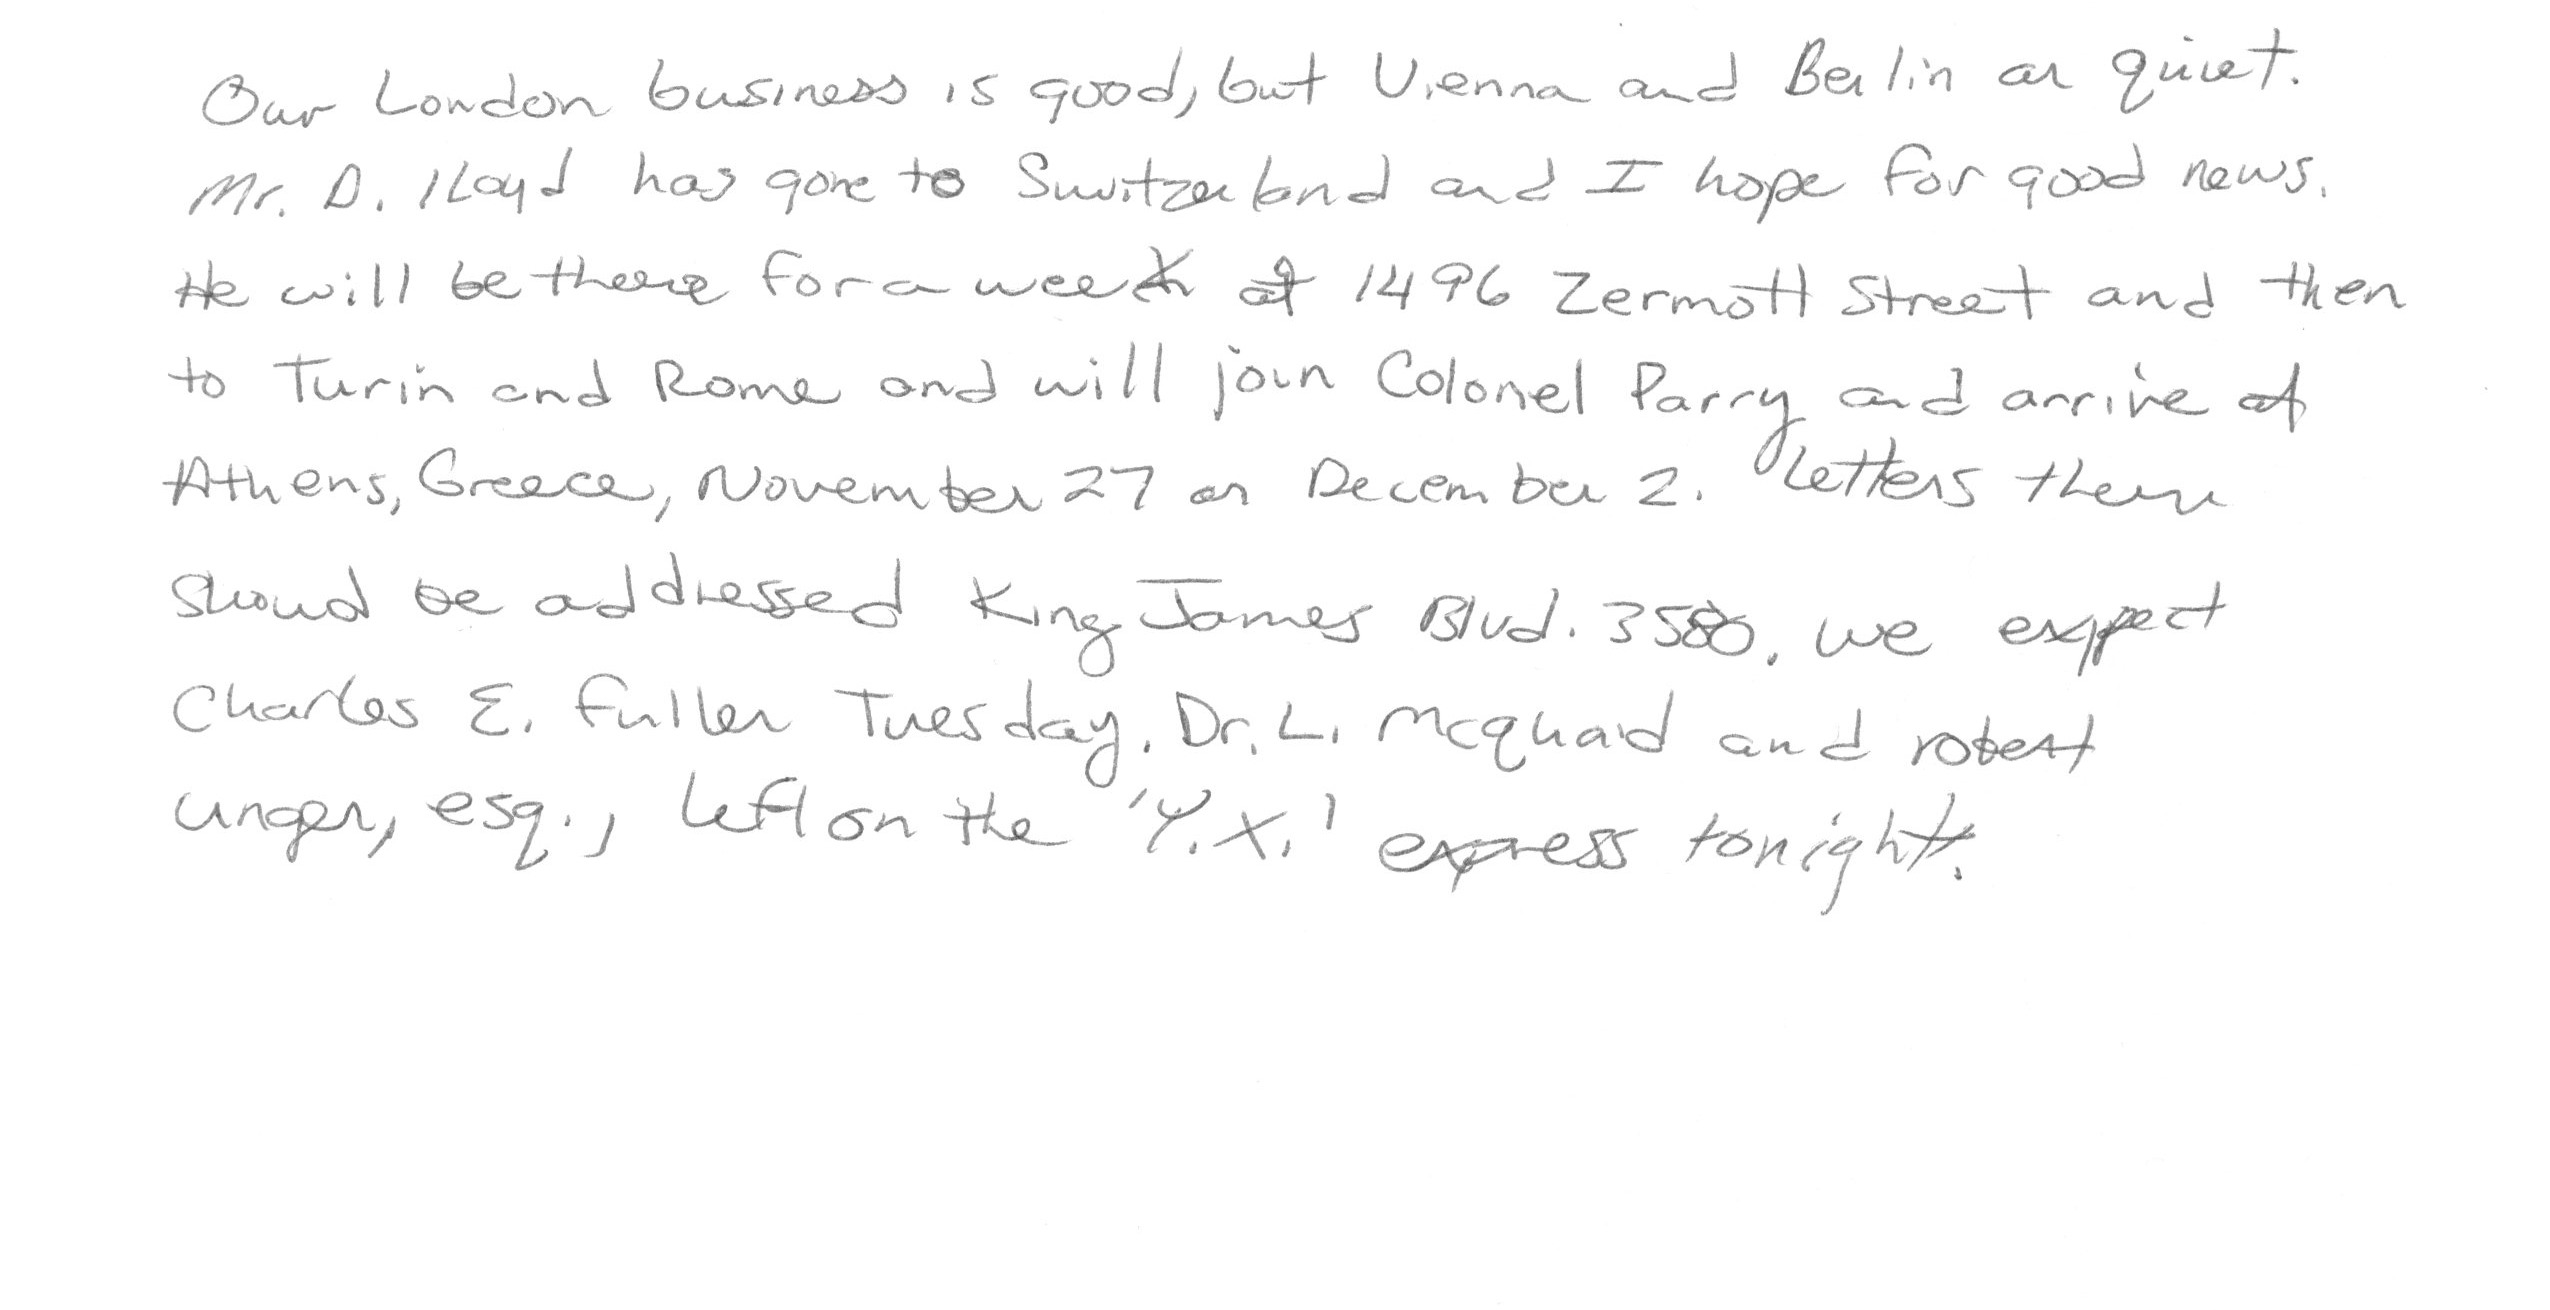 Our London business is good, but Vienna and Berlin are quiet.
Mr. D. Lloyd has gone to Switzerland and I hope for good news.
He will be there for a week at 1496 Zermott Street and then
to Turin and Rome and will join Colonel Parry and arrive at
Athens, Greece, November 27 or December 2. Letters there
shoud be addressed King James Blvd. 3580. we expect
Charles E. Fuller Tuesday. Dr. L. McQuaid and robert
unger, esq., left on the 'Y.X.' express tonight.